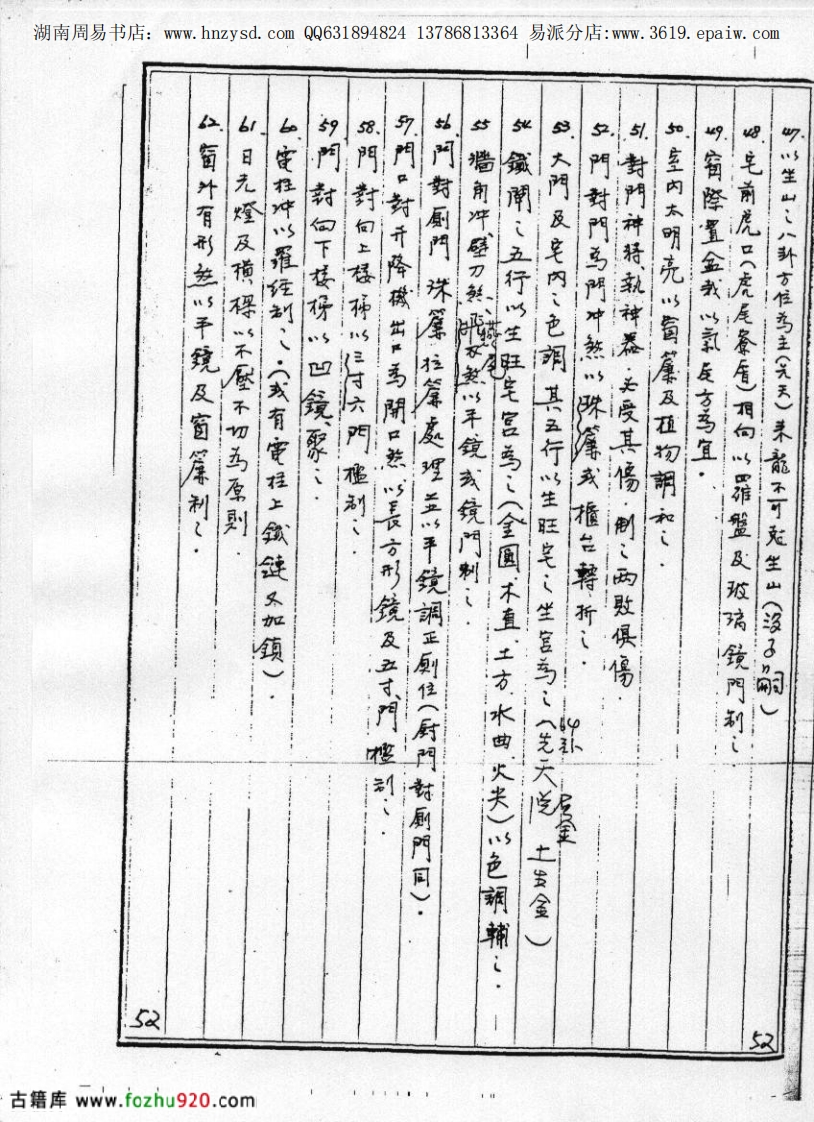 湖南周易书店：www.hnzysd.com QQ631894824 13786813364 易派分店:www.3619.epaiw.com
47. 以坐山之八卦方位為主(先天)來龍不可剋坐山(沒子嗣)
48. 宅前虎口(虎尾祭盾)相向以羅盤及玻璃鏡門制之.
49. 窗際置盆栽以氣長方為宜.
50. 室內太明亮以窗簾及植物調和之.
51. 對門神將執神器必受其傷制之兩敗俱傷.
52. 門對門為門冲煞以珠簾或櫃台轉折之.
53. 大門及宅內之色調其五行以生旺宅之坐宮為之(先天 土生金)
64卦
54. 鐵閘之五行以生旺宅宮為之(金圓.木直.土方.水曲.火尖)以色調輔之.
55. 牆角冲.壁刀煞、煞以平鏡或鏡門制之.
56. 門對廁門珠簾拉簾處理並以平鏡調正廁位(廚門對廁門同).
57. 門口對升降機出口為開口煞以長方形鏡及五寸門檻制之.
58. 門對向上樓梯以三寸六門檻制之.
59. 門對向下樓梯以凹鏡聚之.
60. 電柱冲以羅經制之.(或有電柱上鐵鏈又加鎖).
61. 日光燈及橫樑以不壓不切為原則.
62. 窗外有形煞以平鏡及窗簾制之.
52
52
古籍库 www.fozhu920.com